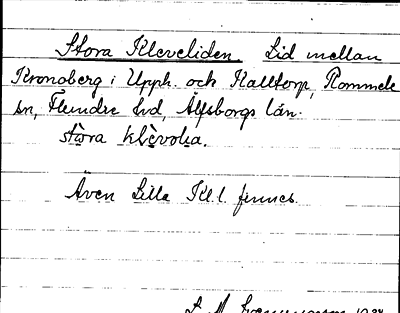 Stora Kleveliden. Lid mellan
Kronoberg i Upph. och Kalltorp, Rommele
sn, Flundre hd, Älfsborgs län.
stòra klèvolia.
Även Lilla Kl.l. finnes.